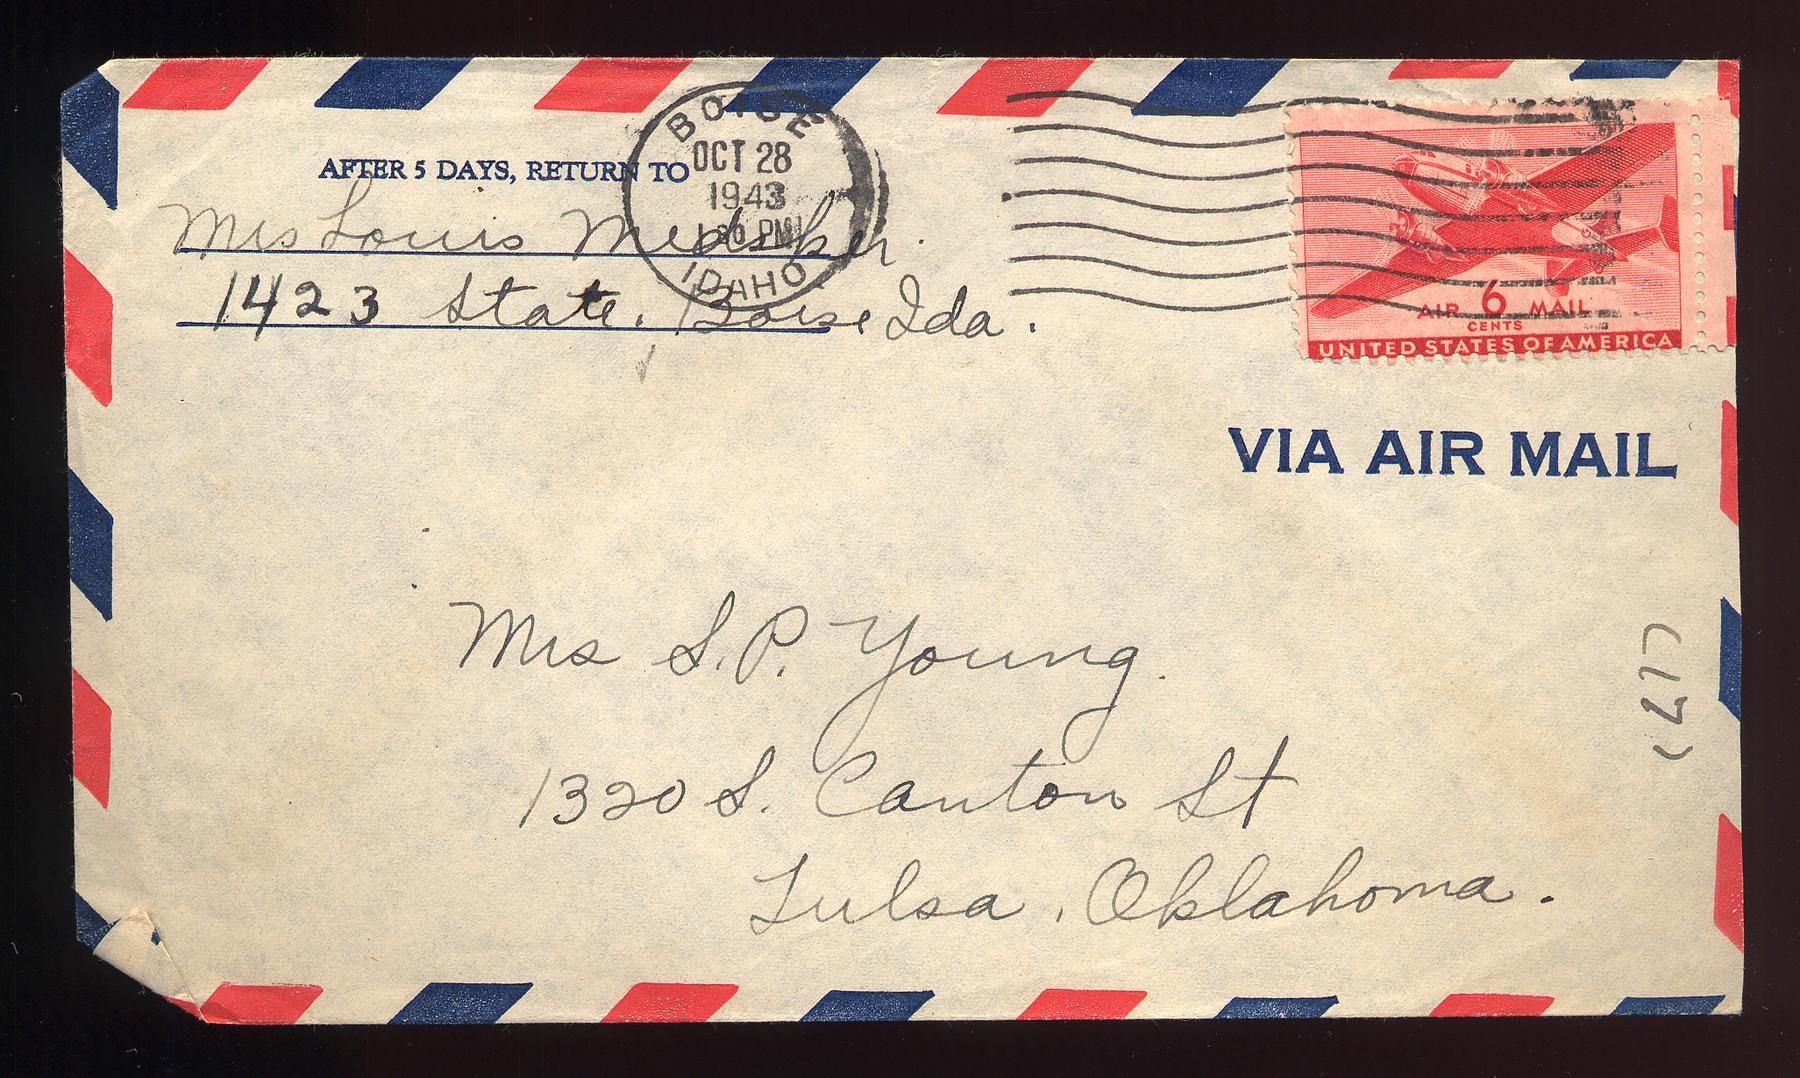 AFTER 5 DAYS, RETURN TO
Mrs Louis Medsker.
1423 State. Boise Ida.
BOISE
OCT 28
1943
PM
IDAHO
AIR 6 MAIL
CENTS
UNITED STATES OF AMERICA
VIA AIR MAIL
Mrs S. P. Young.
1320 S. Canton St
Tulsa, Oklahoma.